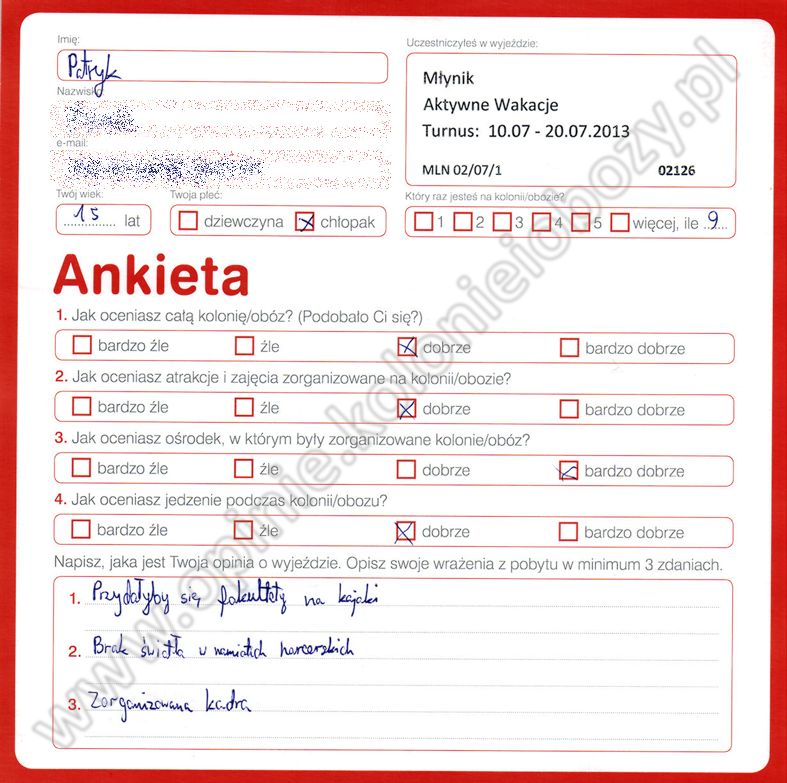 Imię:
Patryk
Nazwisko
e-mail:
Twój wiek:
15 lat
Twoja płeć:
dziewczyna chłopak
Uczestniczyłeś w wyjeździe:
Młynik
Aktywne Wakacje
Turnus: 10.07 - 20.07.2013
MLN 02/07/1 02126
Który raz jesteś na kolonii/obozie?
1 2 3 4 5 więcej, ile 9
Ankieta
1. Jak oceniasz całą kolonię/obóz? (Podobało Ci się?)
bardzo źle źle dobrze bardzo dobrze
2. Jak oceniasz atrakcje i zajęcia zorganizowane na kolonii/obozie?
bardzo źle źle dobrze bardzo dobrze
3. Jak oceniasz ośrodek, w którym były zorganizowane kolonie/obóz?
bardzo źle źle dobrze bardzo dobrze
4. Jak oceniasz jedzenie podczas kolonii/obozu?
bardzo źle źle dobrze bardzo dobrze
Napisz, jaka jest Twoja opinia o wyjeździe. Opisz swoje wrażenia z pobytu w minimum 3 zdaniach.
1. Przydałyby się fakultety na kajaki
2. Brak światła w namiotach harcerskich
3. Zorganizowana kadra
www.opinie.kolonieiobozy.pl